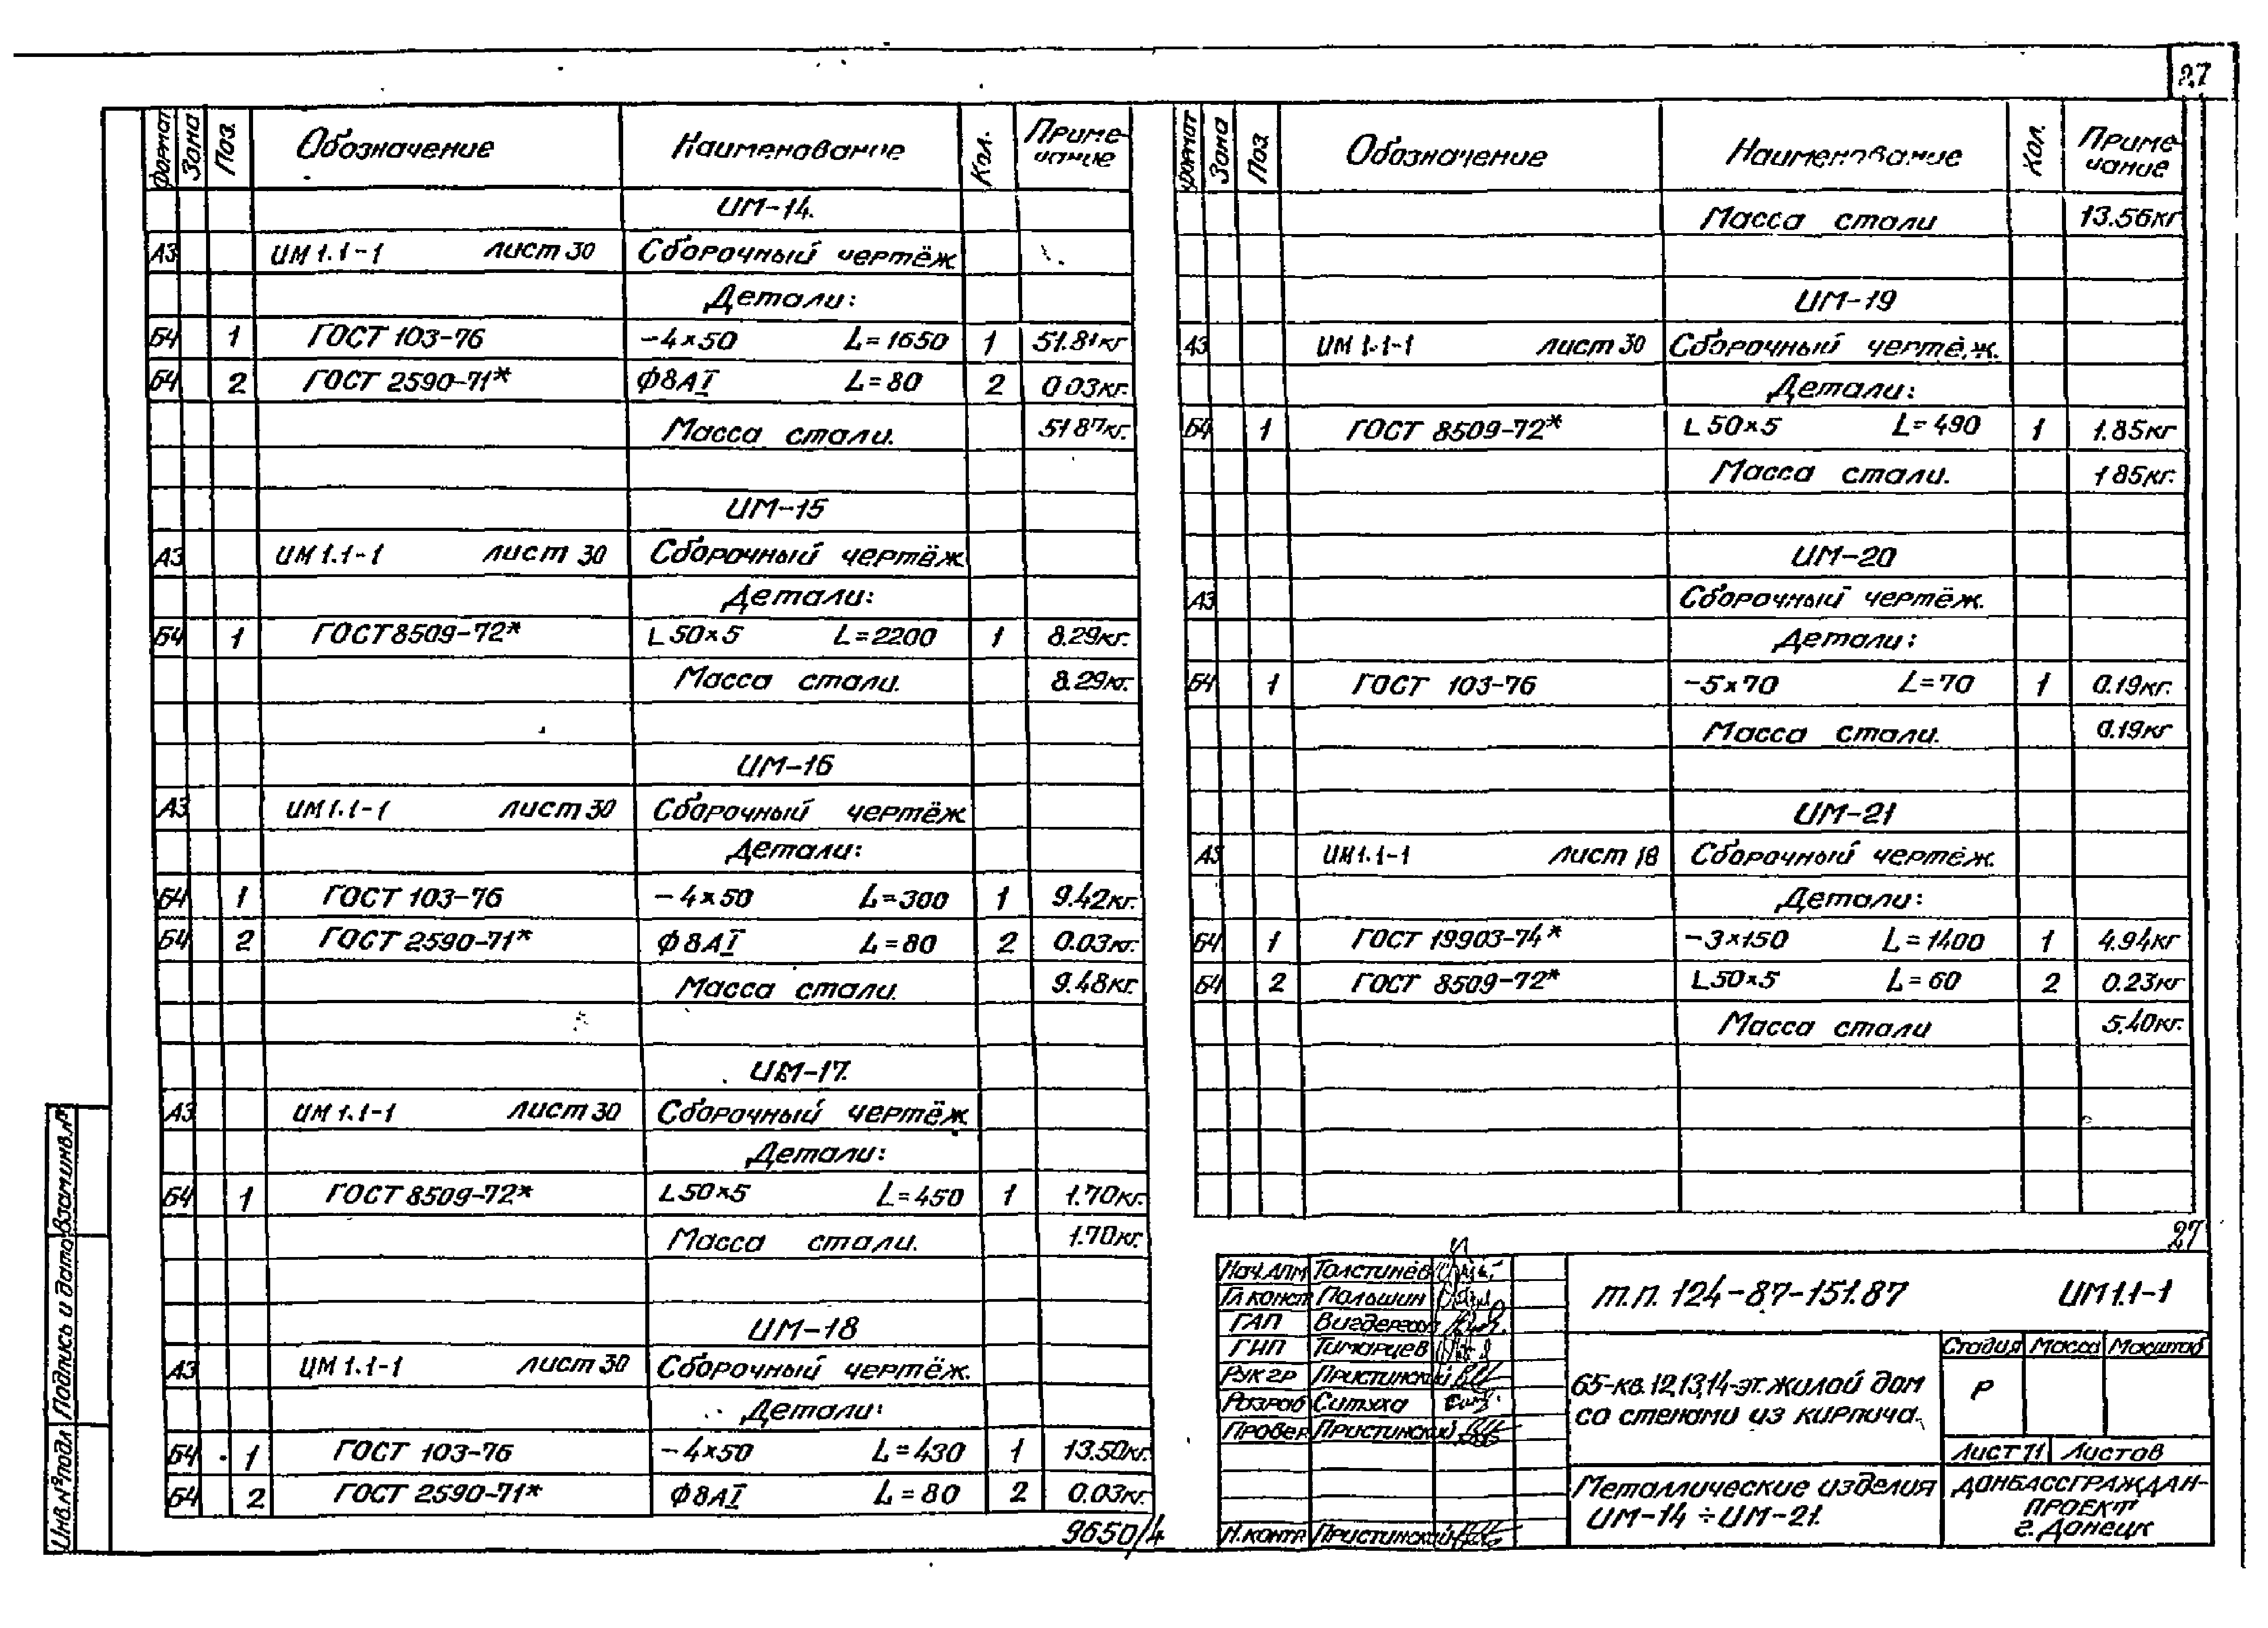 27
Формат Зона Поз. Обозначение Наименование Кол. Приме-чание
ИМ-14.
А3 ИМ 1.1-1 лист 30 Сборочный чертёж
Детали:
Б4 1 ГОСТ 103-76 -4×50 L=1650 1 51.81кг
Б4 2 ГОСТ 2590-71* Ф8АI L=80 2 0.03кг.
Масса стали. 51.87кг.
ИМ-15
А3 ИМ 1.1-1 лист 30 Сборочный чертёж
Детали:
Б4 1 ГОСТ 8509-72* L 50×5 L=2200 1 8.29кг.
Масса стали. 8.29кг.
ИМ-16
А3 ИМ 1.1-1 лист 30 Сборочный чертёж
Детали:
Б4 1 ГОСТ 103-76 -4×50 L=300 1 9.42кг.
Б4 2 ГОСТ 2590-71* Ф8АI L=80 2 0.03кг.
Масса стали 9.48кг
ИМ-17.
А3 ИМ 1.1-1 лист 30 Сборочный чертёж
Детали:
Б4 1 ГОСТ 8509-72* L50×5 L=450 1 1.70кг.
Масса стали. 1.70кг.
ИМ-18
А3 ИМ 1.1-1 лист 30 Сборочный чертёж.
Детали:
Б4 1 ГОСТ 103-76 -4×50 L=430 1 13.50кг.
Б4 2 ГОСТ 2590-71* Ф8АI L=80 2 0.03кг.
9650/4
Формат Зона Поз Обозначение Наименование Кол. Приме-чание
Масса стали 13.56кг
ИМ-19
А3 ИМ 1.1-1 лист 30 Сборочный чертёж.
Детали:
Б4 1 ГОСТ 8509-72* L 50×5 L=490 1 1.85кг
Масса стали. 1.85кг.
ИМ-20
А3 Сборочный чертёж.
Детали:
Б4 1 ГОСТ 103-76 -5×70 L=70 1 0.19кг.
Масса стали. 0.19кг
ИМ-21
А3 ИМ1.1-1 лист 18 Сборочный чертёж.
Детали:
Б4 1 ГОСТ 19903-74* -3×150 L=1400 1 4.94кг
Б4 2 ГОСТ 8509-72* L50×5 L=60 2 0.23кг
Масса стали 5.40кг.
27
Нач.АПМ Толстинёв
Гл конст Пальшин
ГАП
ГИП Тимарцев
Рук гр Пристинский
Розроб Ситуха
Провер. Пристинский
Н.контр Пристинский
т.п. 124-87-151.87 ИМ1.1-1
65-кв.12,13,14-эт.жилой дом
со стенами из кирпича.
Стадия Масса Масштаб
Р
Лист 71 Листов
Металлические изделия
ИМ-14÷ИМ-21.
ДОНБАССГРАЖДАН-
ПРОЕКТ
г.Донецк
Взам.инв.№
Подпись и дата
Инв.№подл